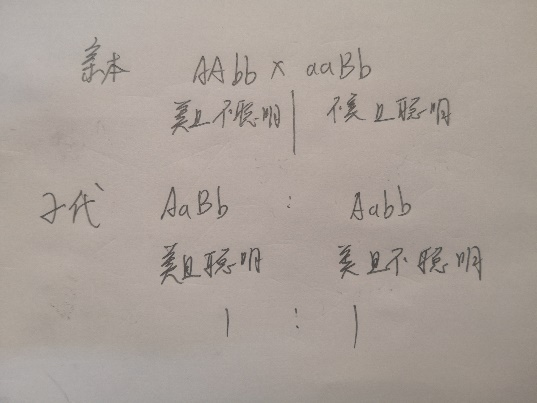 亲本 AAbb × aaBb
美且不聪明 | 不美且聪明
子代 AaBb : Aabb
美且聪明 美且不聪明
1 : 1